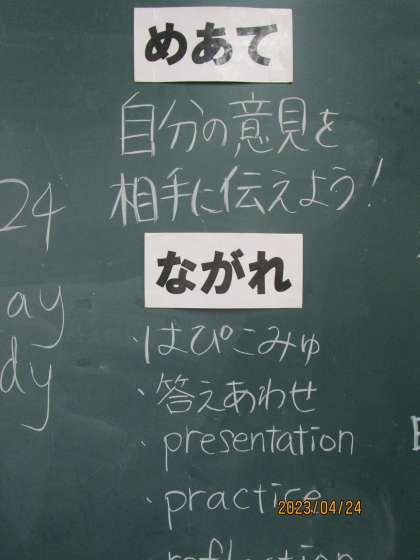 めあて
自分の意見を
相手に伝えよう!
24
ay
dy
ながれ
・はぴこみゅ
・答えあわせ
・presentation
・practice
reflection
2023/04/24